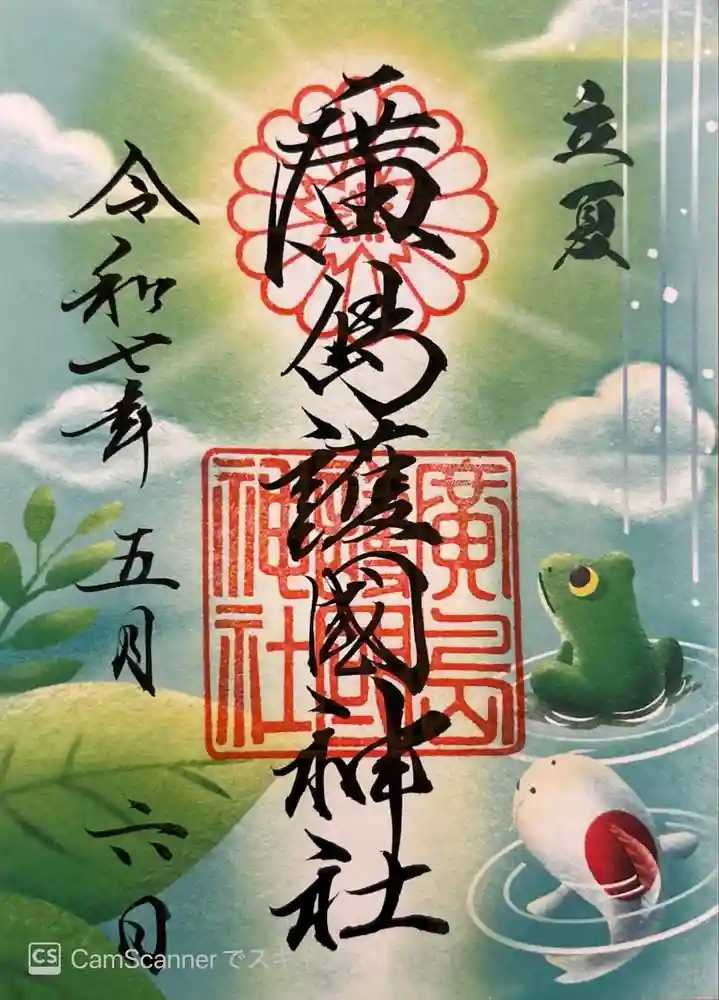 立夏
廣島護國神社
令和七年 五月 六日
廣島
護國
神社
CS CamScanner でスキ